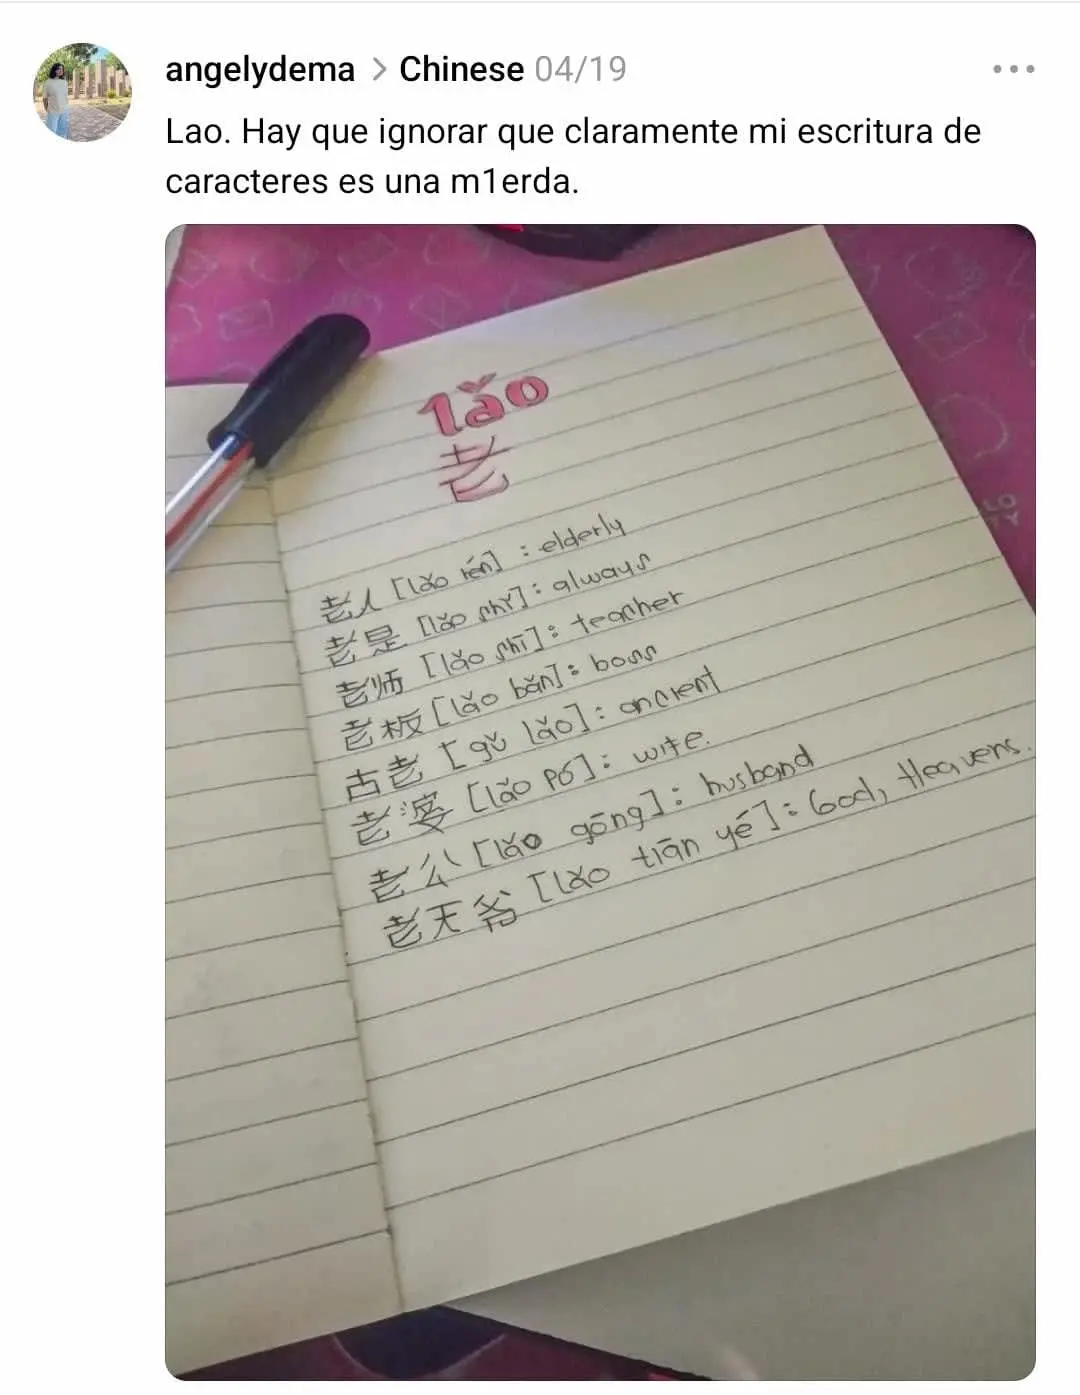 angelydema > Chinese 04/19
Lao. Hay que ignorar que claramente mi escritura de
caracteres es una m1erda.
lǎo
老
老人 [lǎo rén] : elderly
老是 [lǎo shì] : always
老师 [lǎo shī] : teacher
老板 [lǎo bǎn] : boss
古老 [gǔ lǎo] : ancient
老婆 [lǎo pó] : wife.
老公 [lǎo gōng] : husband
老天爷 [lǎo tiān yé] : God, Heavens.